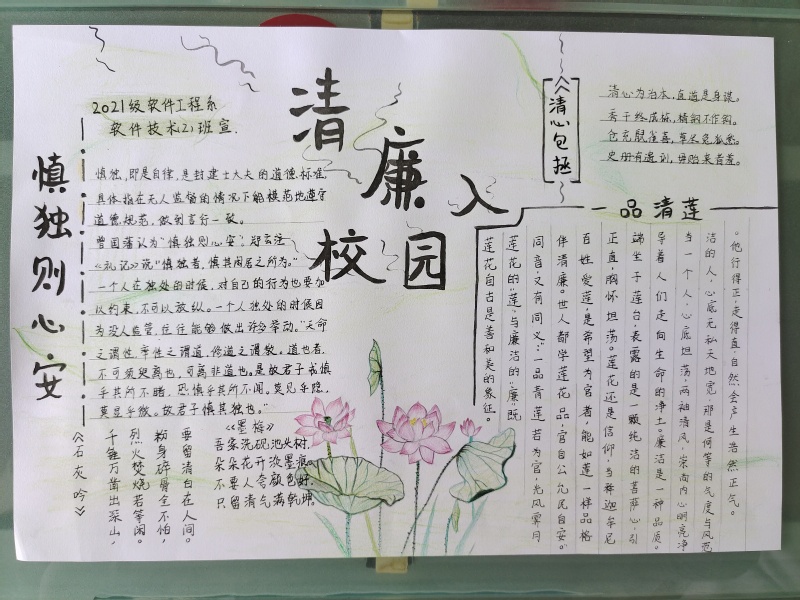 2021级软件工程系
软件技术(2)班宣.
清廉入
校园
慎独则心安
慎独,即是自律,是封建士大夫的道德标准
具体指在无人监督的情况下能模范地遵守
道德规范,做到言行一致。
曾国藩认为"慎独则心安",郑玄注
《礼记》说"慎独者,慎其闲居之所为。"
一个人在独处的时候,对自己的行为也要加
以约束,不可以放纵。一个人独处的时候因
为没人监管,往往能够做出许多举动。"天命
之谓性,率性之谓道,修道之谓教。道也者,
不可须臾离也,可离非道也。是故君子戒慎
乎其所不睹,恐惧乎其所不闻。莫见乎隐,
莫显乎微。故君子慎其独也。"
《石灰吟》
千锤万凿出深山,
烈火焚烧若等闲。
粉身碎骨全不怕,
要留清白在人间。
《墨梅》
吾家洗砚池头树,
朵朵花开淡墨痕。
不要人夸颜色好,
只留清气满乾坤。
《清心包拯
清心为治本,直道是身谋。
秀干终成栋,精钢不作钩。
仓充鼠雀喜,草尽兔狐愁。
史册有遗训,毋贻来者羞。
一品清莲
。他行得正,走得直,自然会产生浩然正气。
洁的人,心底无私天地宽,那是何等的气度与风范
当一个人,心底坦荡,两袖清风,崇尚内心明亮净
导着人们走向生命的净土。廉洁是一种品质。
端坐于莲台,表露的是一颗纯洁的菩萨心,引
正直,胸怀坦荡。莲花还是信仰,当释迦牟尼
百姓爱莲,是希望为官者,能如莲一样品格
伴清廉。世人都学莲花品,官自公允民自安。
同音,又有同义:"一品青莲若为官,光风霁月
莲花的"莲"与廉洁的"廉"既
莲花自古是善和美的象征。